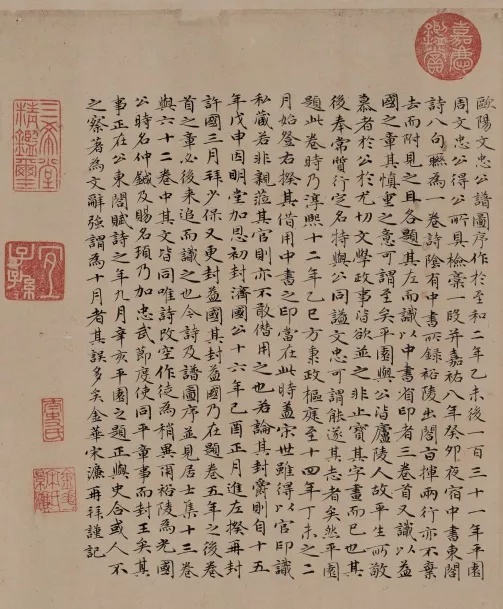 嘉慶鑑賞
歐陽文忠公譜圖序作於至和二年乙未後一百三十一年平園
周文忠公得公所具檢藁一段并嘉祐八年癸卯夜宿中書東閣
詩八句聯為一卷詩陰有中書所錄裕陵出閣百揮兩行亦不棄
去而附見之且各題其左而識以中書省印者三卷首又識以益
國之章其慎重之意可謂至矣平園與公皆廬陵人故平生所敬
慕者於公於尤切文學政事皆欲並之非止寶其字畫而已也其
後奉常質行定名特與公同謚文忠可謂能遂其志者矣然平園
題此卷時乃淳熙十二年乙巳方秉政樞庭至十四年丁未之二
月始登右揆其借用中書之印當在此時蓋宋世雖得以官印識
私藏若非親涖其官則亦不敢僭用之也若論其封爵則自十五
年戊申因明堂加恩初封濟國公十六年己酉正月進左揆再封
許國三月拜少保又更封益國其封益國乃在題卷五年之後卷
首之章必後來追而識之也今詩及譜圖序並見居士集十三卷
與六十二卷中其文皆同唯詩改空作徒為稍異爾裕陵為光國
公時名仲鍼及賜名頊乃加忠武節度使同平章事而封王矣其
事正在公東閣賦詩之年九月辛亥平園之題正與史合或人不
之察著為文辭強謂為十月者其誤多矣金華宋濂再拜謹記
三希堂精鑑璽
宜子孫